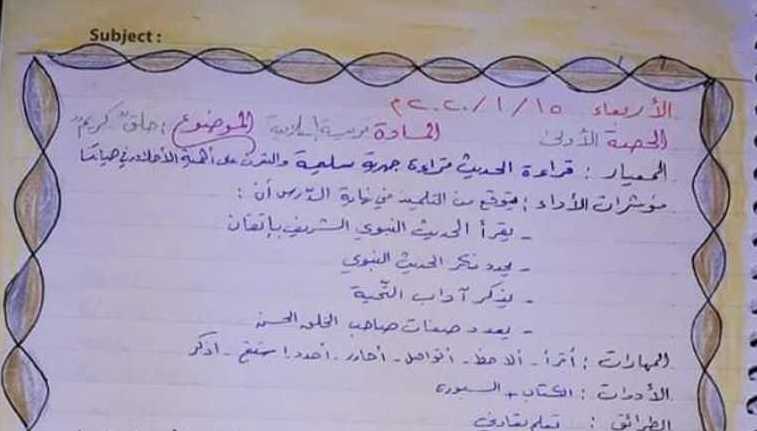 Subject :
الأربعاء ١٥ / ١ / ٢٠٢٠ م
الحصة الأولى المادة تربية إسلامية الموضوع : خلق كريم
المعيار : قراءة الحديث قراءة جهرية سليمة والتعرف على أهمية الأخلاق في حياتنا
مؤشرات الأداء : يتوقع من التلميذ في نهاية الدرس أن :
- يقرأ الحديث النبوي الشريف بإتقان
- يحدد فكر الحديث النبوي
- يذكر آداب التحية
- يعدد صفات صاحب الخلق الحسن
المهارات : أقرأ - ألاحظ - أتواصل - أحاور - أحدد - استنتج - أذكر
الأدوات : الكتاب + السبورة
الطرائق : تعلم تعاوني